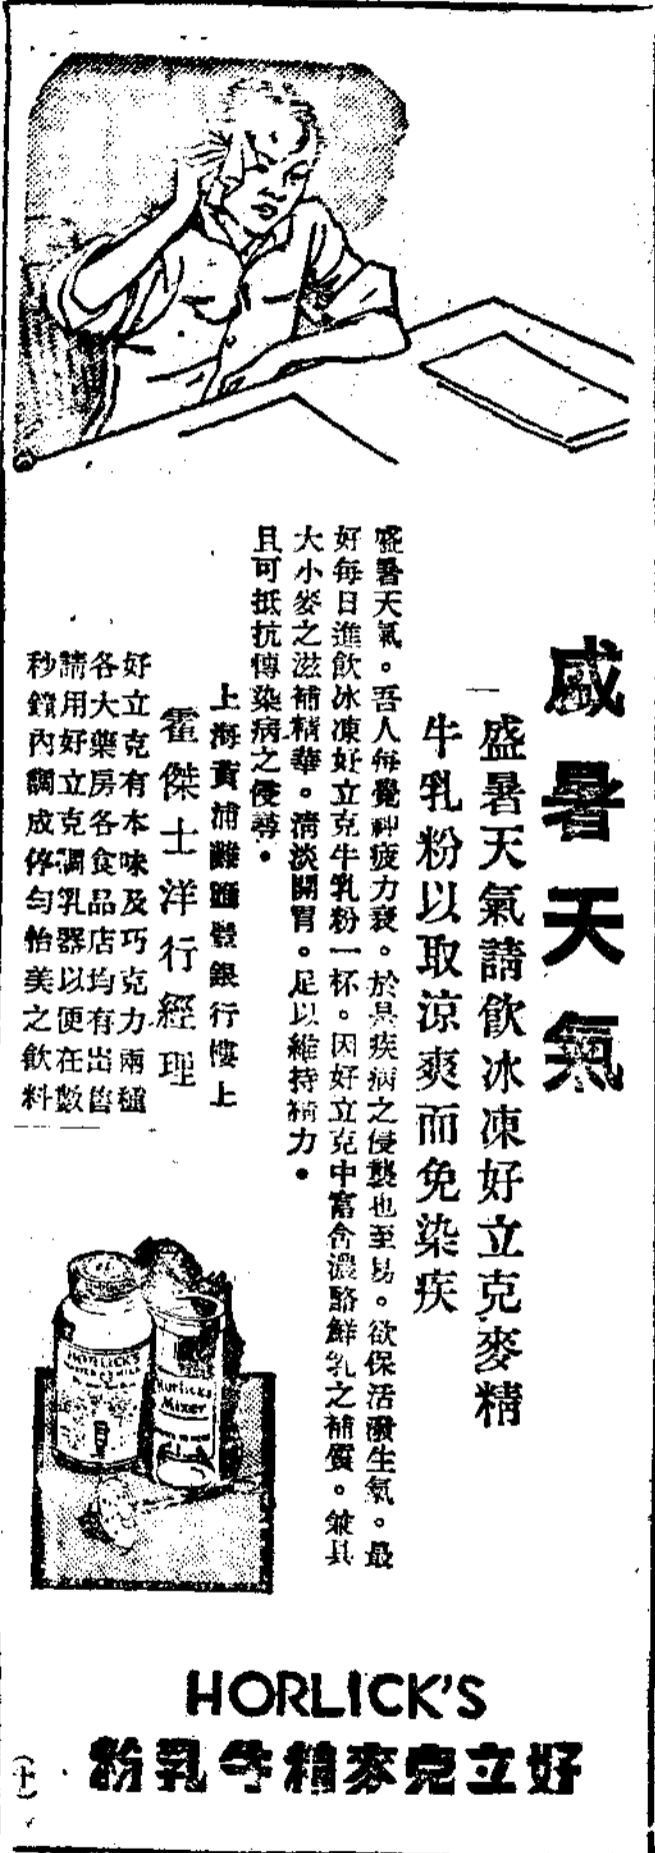 盛暑天氣
盛暑天氣請飲冰凍好立克麥精
牛乳粉以取涼爽而免染疾
盛暑天氣。吾人每覺神疲力衰。於是疾病之侵襲也至易。欲保活潑生氣。最
好每日進飲冰凍好立克牛乳粉一杯。因好立克中富含濃酪鮮乳之補質。兼具
大小麥之滋補精華。清淡開胃。足以維持精力。
且可抵抗傳染病之侵尋。
上海黃浦灘匯豐銀行樓上
霍傑士洋行經理
好立克有本味及巧克力兩種
各大藥房各食品店均有出售
請用好立克調乳器以便在數
秒鐘內調成停勻怡美之飲料
HORLICK'S
Horlicks
Mixer
HORLICK'S
好立克麥精牛乳粉